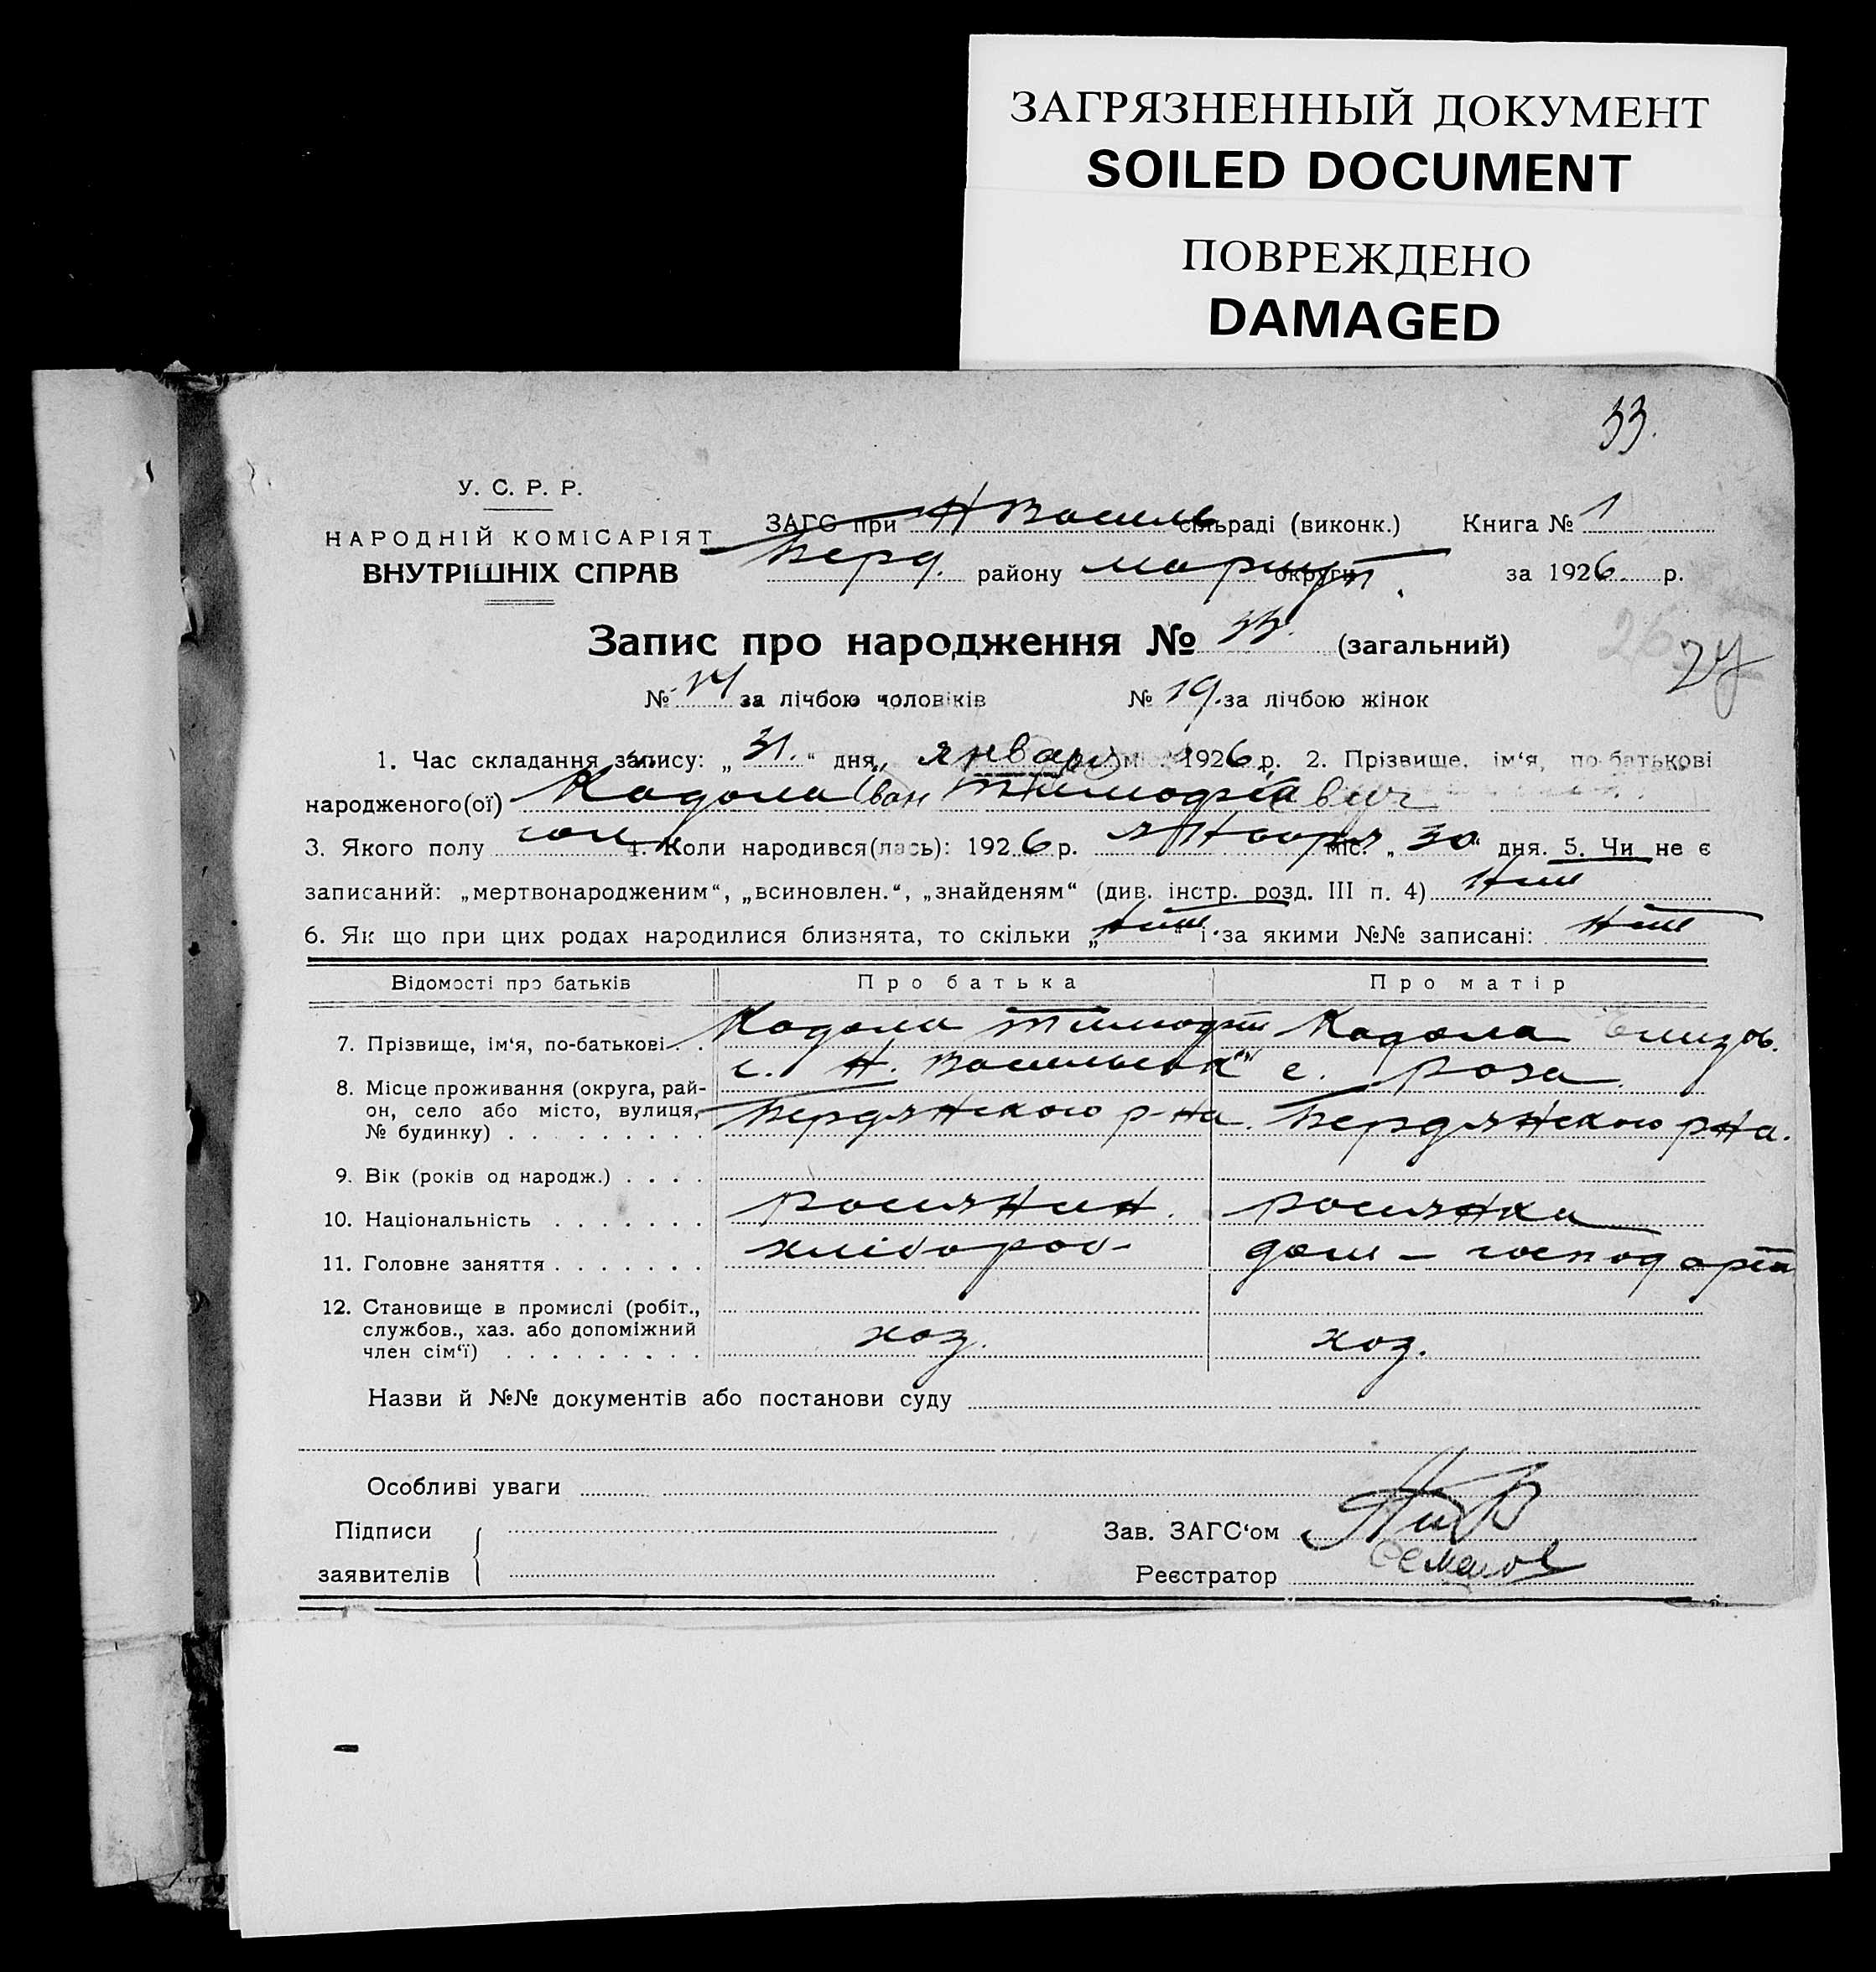 ЗАГРЯЗНЕННЫЙ ДОКУМЕНТ
SOILED DOCUMENT
ПОВРЕЖДЕНО
DAMAGED
33.
У. С. Р. Р.
НАРОДНІЙ КОМІСАРІЯТ
ВНУТРІШНІХ СПРАВ
ЗАГС при Н Василь сільраді (виконк.) Книга № 1
Берд. району Мариуп. округи за 1926 р.
Запис про народження № 33. (загальний)
26 27
№ 14 за лічбою чоловіків № 19. за лічбою жінок
1. Час складання запису: „ 31. “ дня, января міс. 1926 р. 2. Прізвище, ім‘я, по-батькові
народженого(ої) Кадола Іван Тимофієвич
3. Якого полу 4. Коли народився(лась): 1926 р. января міс. „ 30 “ дня. 5. Чи не є
записаний: „мертвонародженим“, „всиновлен.“, „знайденям“ (див. інстр. розд. III п. 4) Ніт
6. Як що при цих родах народилися близнята, то скільки „ Ніт “ і за якими №№ записані: Ніт
Відомості про батьків Про батька Про матір
7. Прізвище, ім‘я, по-батькові . . Кадола Тимофій Кадола Елизов.
8. Місце проживання (округа, рай-он, село або місто, вулиця, № будинку) . . . . . . . . . с. Н. Васильевка с. Роза
Бердянского р-на. Бердянского рна.
9. Вік (років од народж.) . . . .
10. Національність . . . . . . . росиянин. росиянка
11. Головне заняття . . . . . . . хлібороб- дом - господарка
12. Становище в промислі (робіт., службов., хаз. або допоміжний член сім‘ї) . . . . . . . . . хоз. хоз.
Назви й №№ документів або постанови суду
Особливі уваги
Підписи
заявителів
Зав. ЗАГС‘ом
Реєстратор